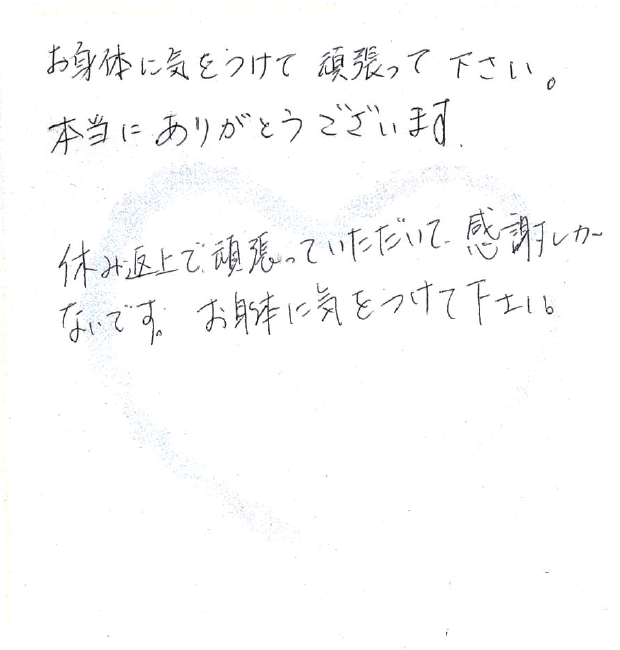 お身体に気をつけて 頑張って下さい。
本当に ありがとうございます.
休み返上で頑張っていただいて 感謝しか
ないです。 お身体に気をつけて下さい。